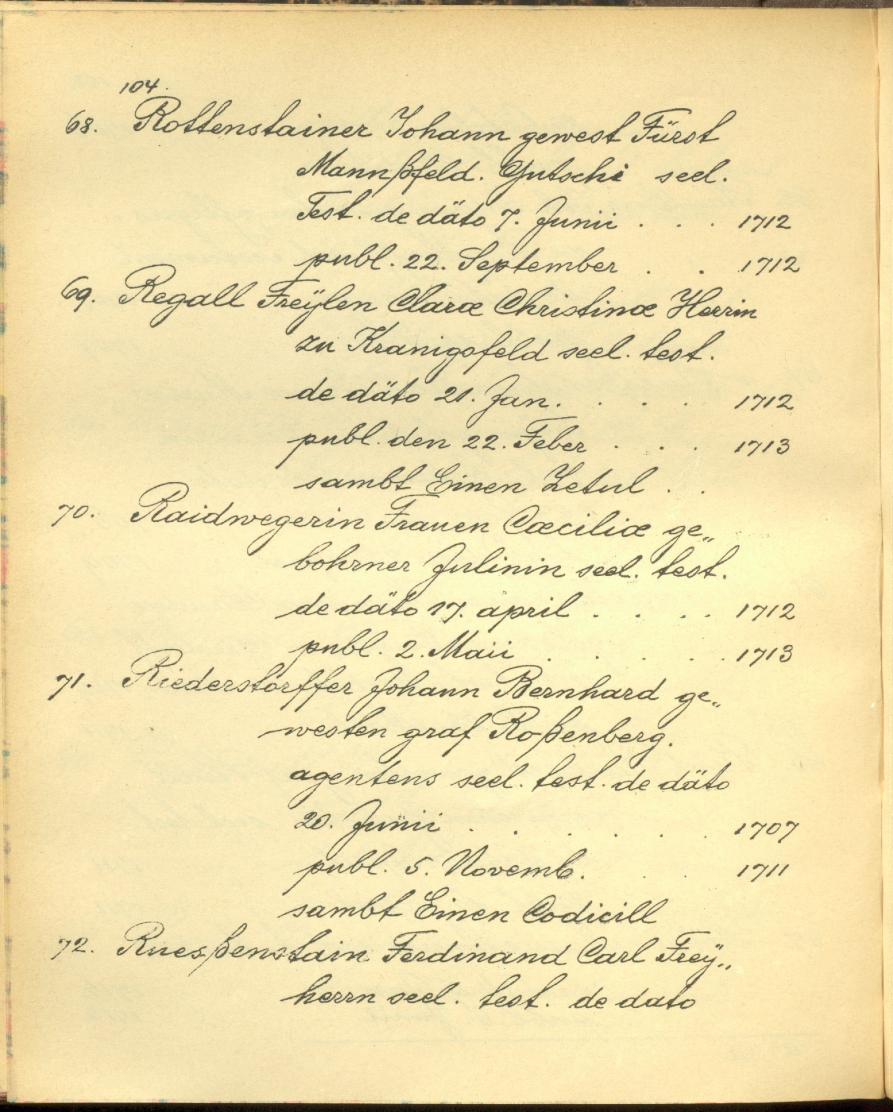 104.
68. Rottenstainer Johann gewest Fürst
Mannßfeld. Gutschi seel.
Test. de däto 7. Junii . . . 1712
publ. 22. September . . 1712
69. Regall Freÿlen Claræ Christinæ Herrin
zu Kranigsfeld seel. test.
de däto 21. Jan. . . . . 1712
publ. den 22. Feber . . . 1713
sambt Einen Zetul . .
70. Raidwegerin Frauen Cæciliæ ge„
bohrner Julinin seel. test.
de däto 17. april . . . . 1712
publ. 2. Maii . . . . . 1713
71. Riederstörffer Johann Bernhard ge„
westen graf Roßenberg.
agentens seel. test. de däto
20. Junii . . . . . . 1707
publ. 5. Novemb. . . 1711
sambt Einen Codicill
72. Ruesßenstain Ferdinand Carl Freÿ„
herrn seel. test. de dato